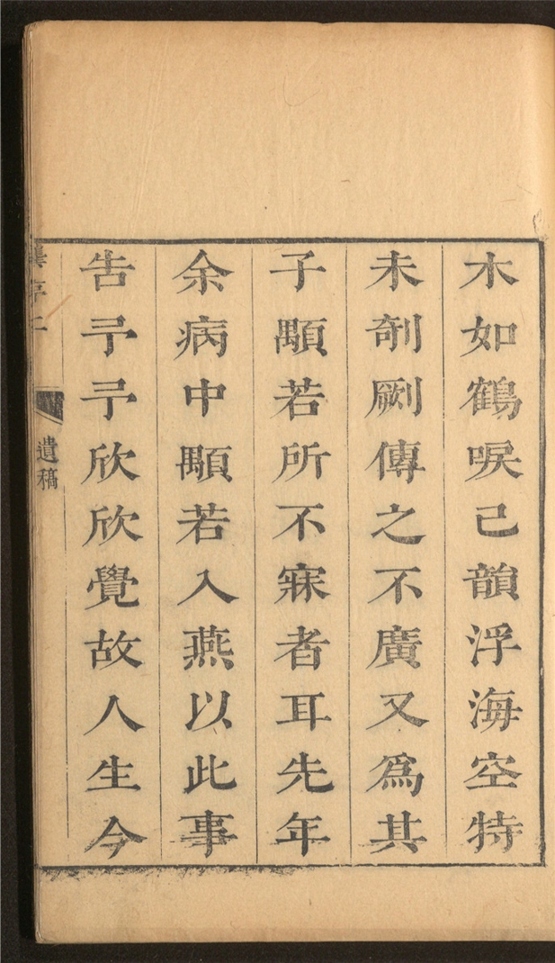 木如鶴唳已韻浮海空特
未剞劂傳之不廣又為其
子顒若所不寐者耳先年
余病中顒若入燕以此事
告予予欣欣覺故人生今
遺稿